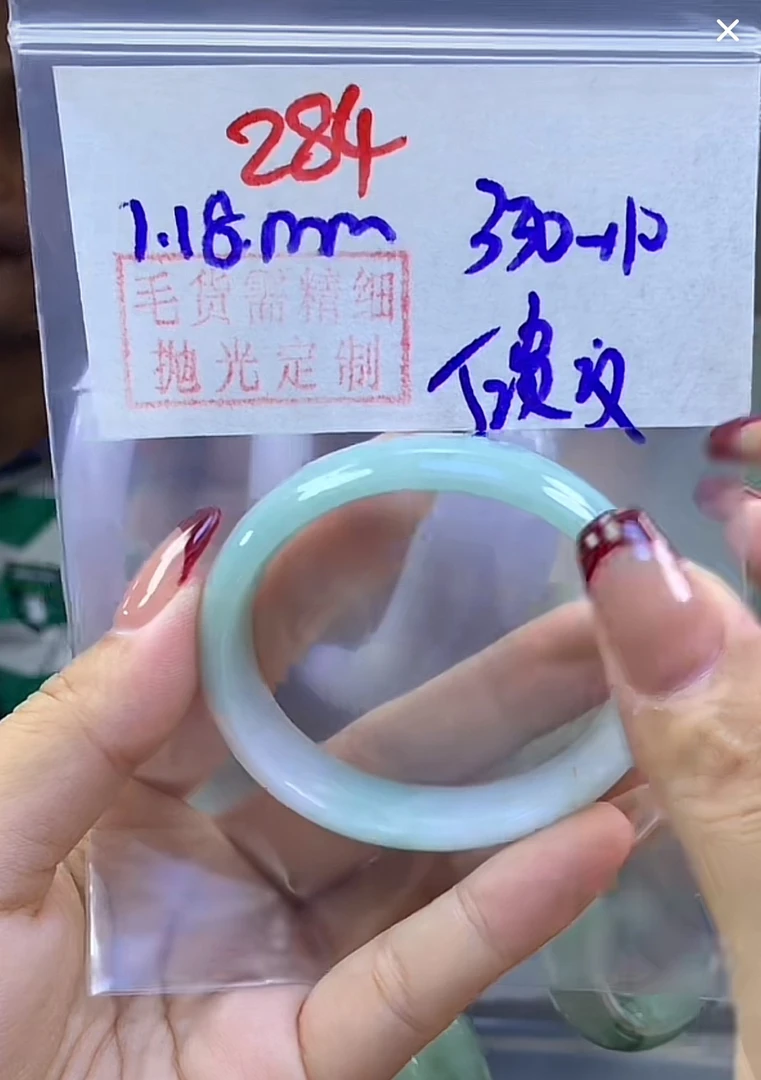 284
1.18.mm 330-10
毛货需精细
抛光定制